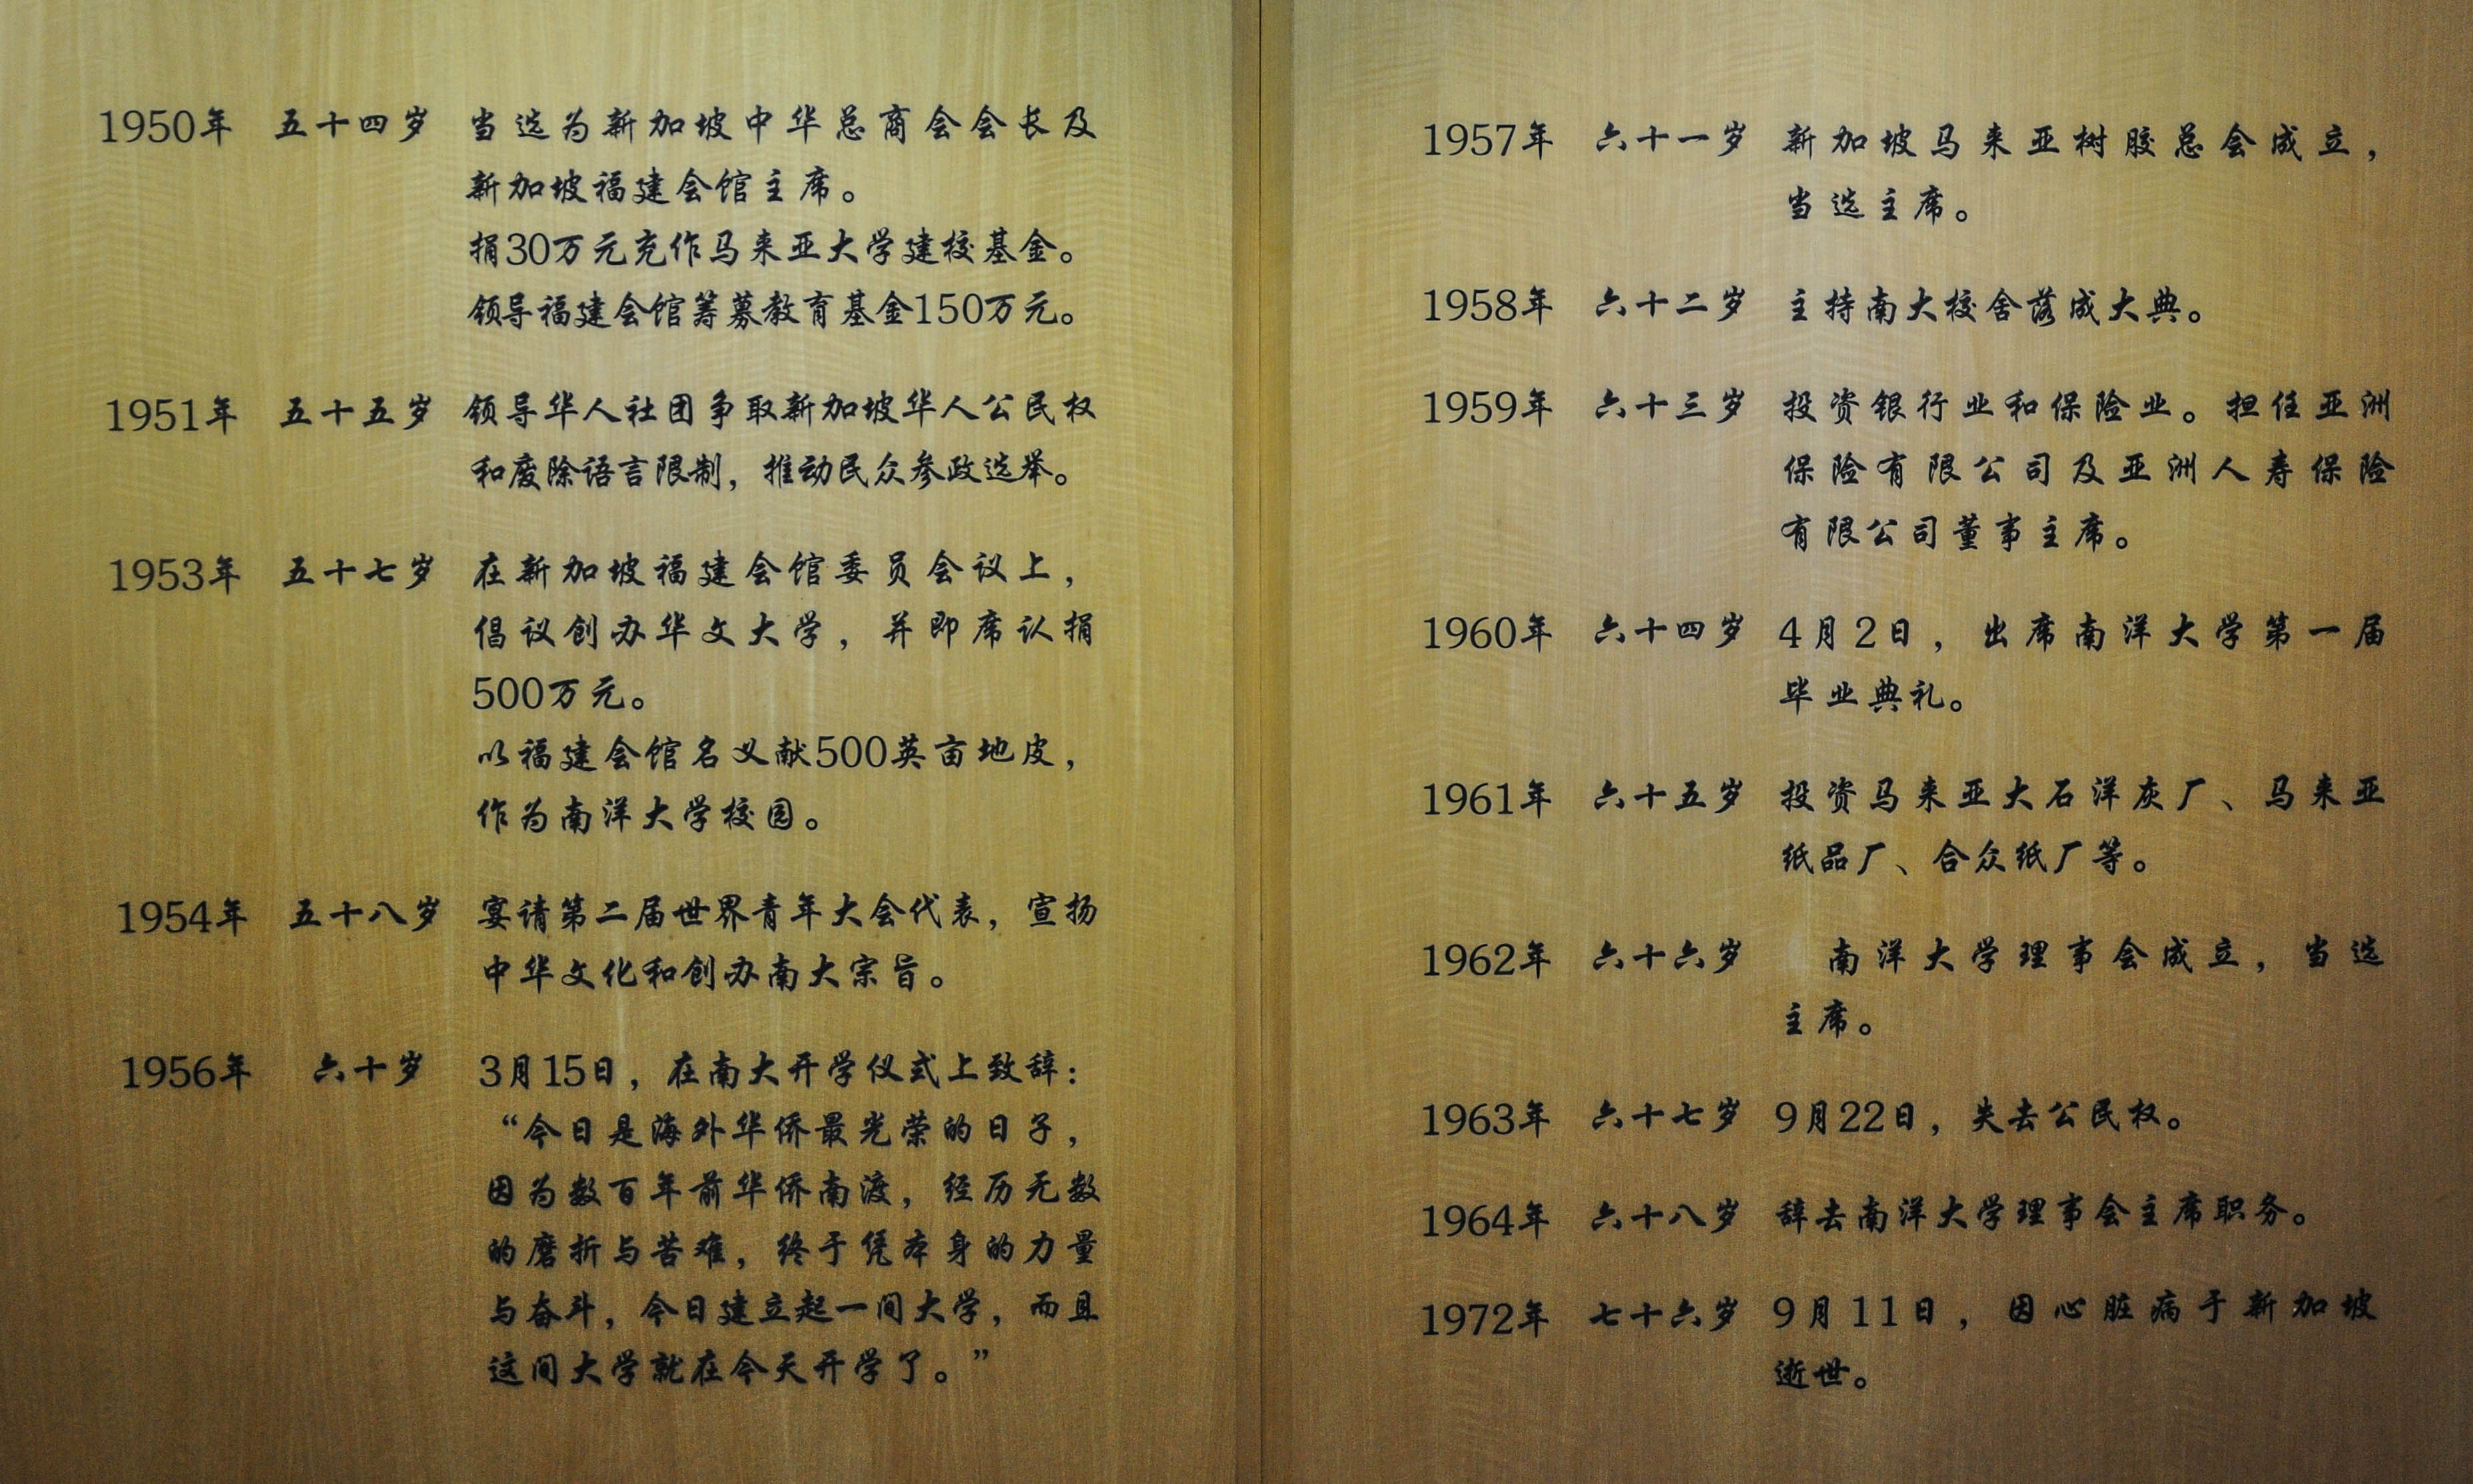 1950年 五十四岁 当选为新加坡中华总商会会长及
新加坡福建会馆主席。
捐30万元充作马来亚大学建校基金。
领导福建会馆筹募教育基金150万元。
1951年 五十五岁 领导华人社团争取新加坡华人公民权
和废除语言限制，推动民众参政选举。
1953年 五十七岁 在新加坡福建会馆委员会议上，
倡议创办华文大学，并即席认捐
500万元。
以福建会馆名义献500英亩地皮，
作为南洋大学校园。
1954年 五十八岁 宴请第二届世界青年大会代表，宣扬
中华文化和创办南大宗旨。
1956年 六十岁 3月15日，在南大开学仪式上致辞：
“今日是海外华侨最光荣的日子，
因为数百年前华侨南渡，经历无数
的磨折与苦难，终于凭本身的力量
与奋斗，今日建立起一间大学，而且
这间大学就在今天开学了。”
1957年 六十一岁 新加坡马来亚树胶总会成立，
当选主席。
1958年 六十二岁 主持南大校舍落成大典。
1959年 六十三岁 投资银行业和保险业。担任亚洲
保险有限公司及亚洲人寿保险
有限公司董事主席。
1960年 六十四岁 4月2日，出席南洋大学第一届
毕业典礼。
1961年 六十五岁 投资马来亚大石洋灰厂、马来亚
纸品厂、合众纸厂等。
1962年 六十六岁 南洋大学理事会成立，当选
主席。
1963年 六十七岁 9月22日，失去公民权。
1964年 六十八岁 辞去南洋大学理事会主席职务。
1972年 七十六岁 9月11日，因心脏病于新加坡
逝世。